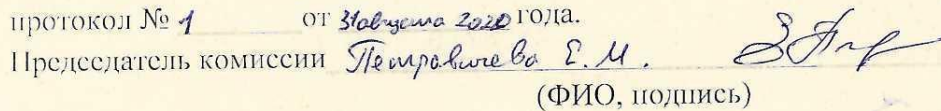 протокол № 1 от 31 августа 2020 года.
Председатель комиссии Петравичева Е. М.
(ФИО, подпись)